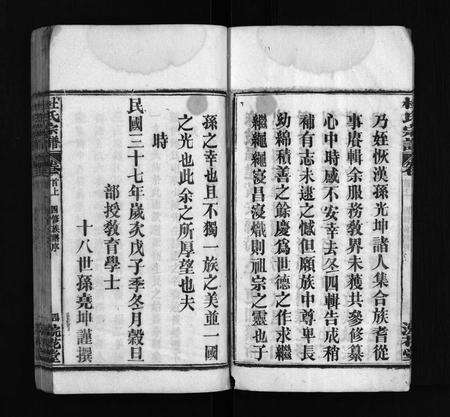 乃姪恢漢孫光坤諸人集合族耆從
事賡輯余服務敎界未獲共參修纂
心中時感不安幸去冬四輯告成稍
補有志未逮之憾但願族中尊卑長
幼綿積善之餘慶爲世德之作求繼
繼繩繩寖昌寖熾則祖宗之靈也子
孫之幸也且不獨一族之美並一國
之光也此余之所厚望也夫
時
民國三十七年歲次戊子季冬月穀旦
部授敎育學士
十八世孫堯坤謹撰
杜氏宗譜
卷首上 四修族譜序
浣花堂